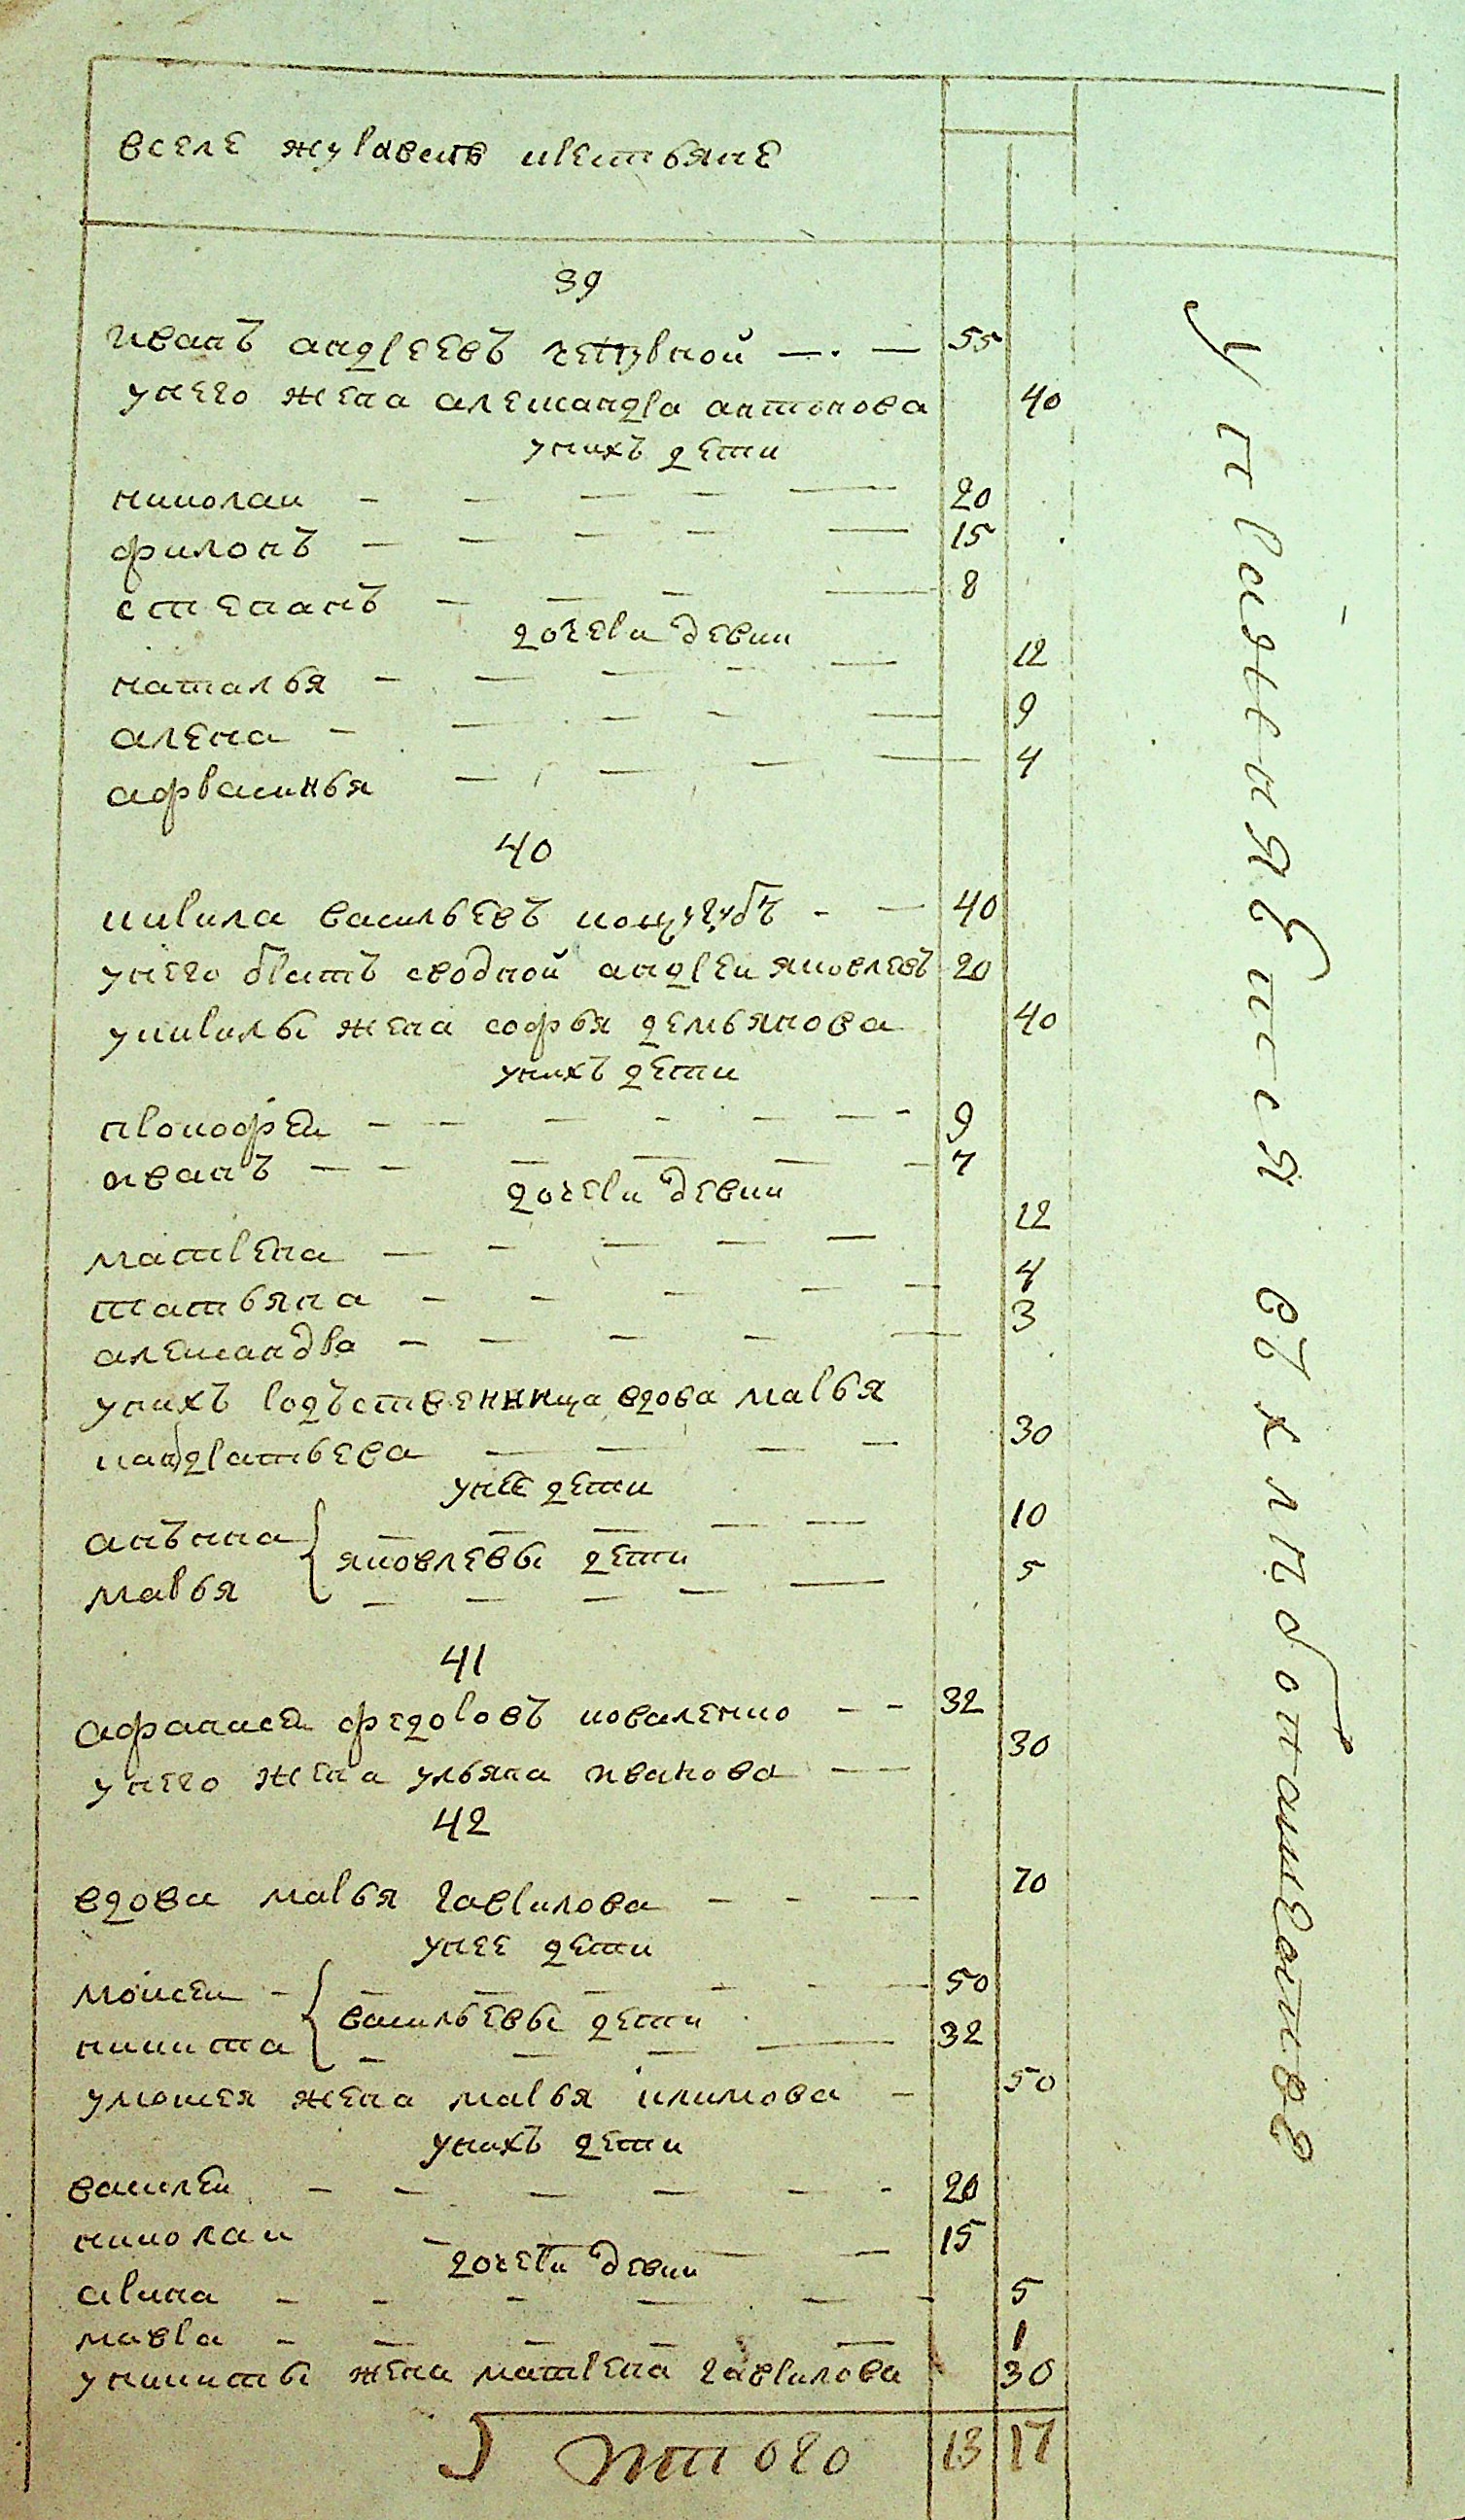 вселе журавите крестьяне
39
иванъ андреевъ чепурной 55
унего жена александра антонова 40
унихъ дети
николаи 20
филонъ 15
степанъ 8
дочери девки
наталья 12
алена 9
афрасинья 4
40
кирила васильевъ 40
унего братъ сводной андреи яковлевъ 20
укирилы жена софья демьянова 40
унихъ дети
прокофеи 9
иванъ 7
дочери девки
матрена 12
татьяна 4
александра 3
унихъ родъственница вдова марья
кандратьева 30
унее дети
анънна 10
яковлевы дети
марья 5
41
афанасеи федоровъ коваленко 32
унего жена ульяна иванова 30
42
вдова марья гаврилова 70
унее дети
моисеи 50
васильевы дети
никита 32
умоисея жена марья климова 50
унихъ дети
василеи 20
николаи 15
дочери девки
арина 5
мавра 1
уникиты жена матрена гаврилова 30
итого 13 17